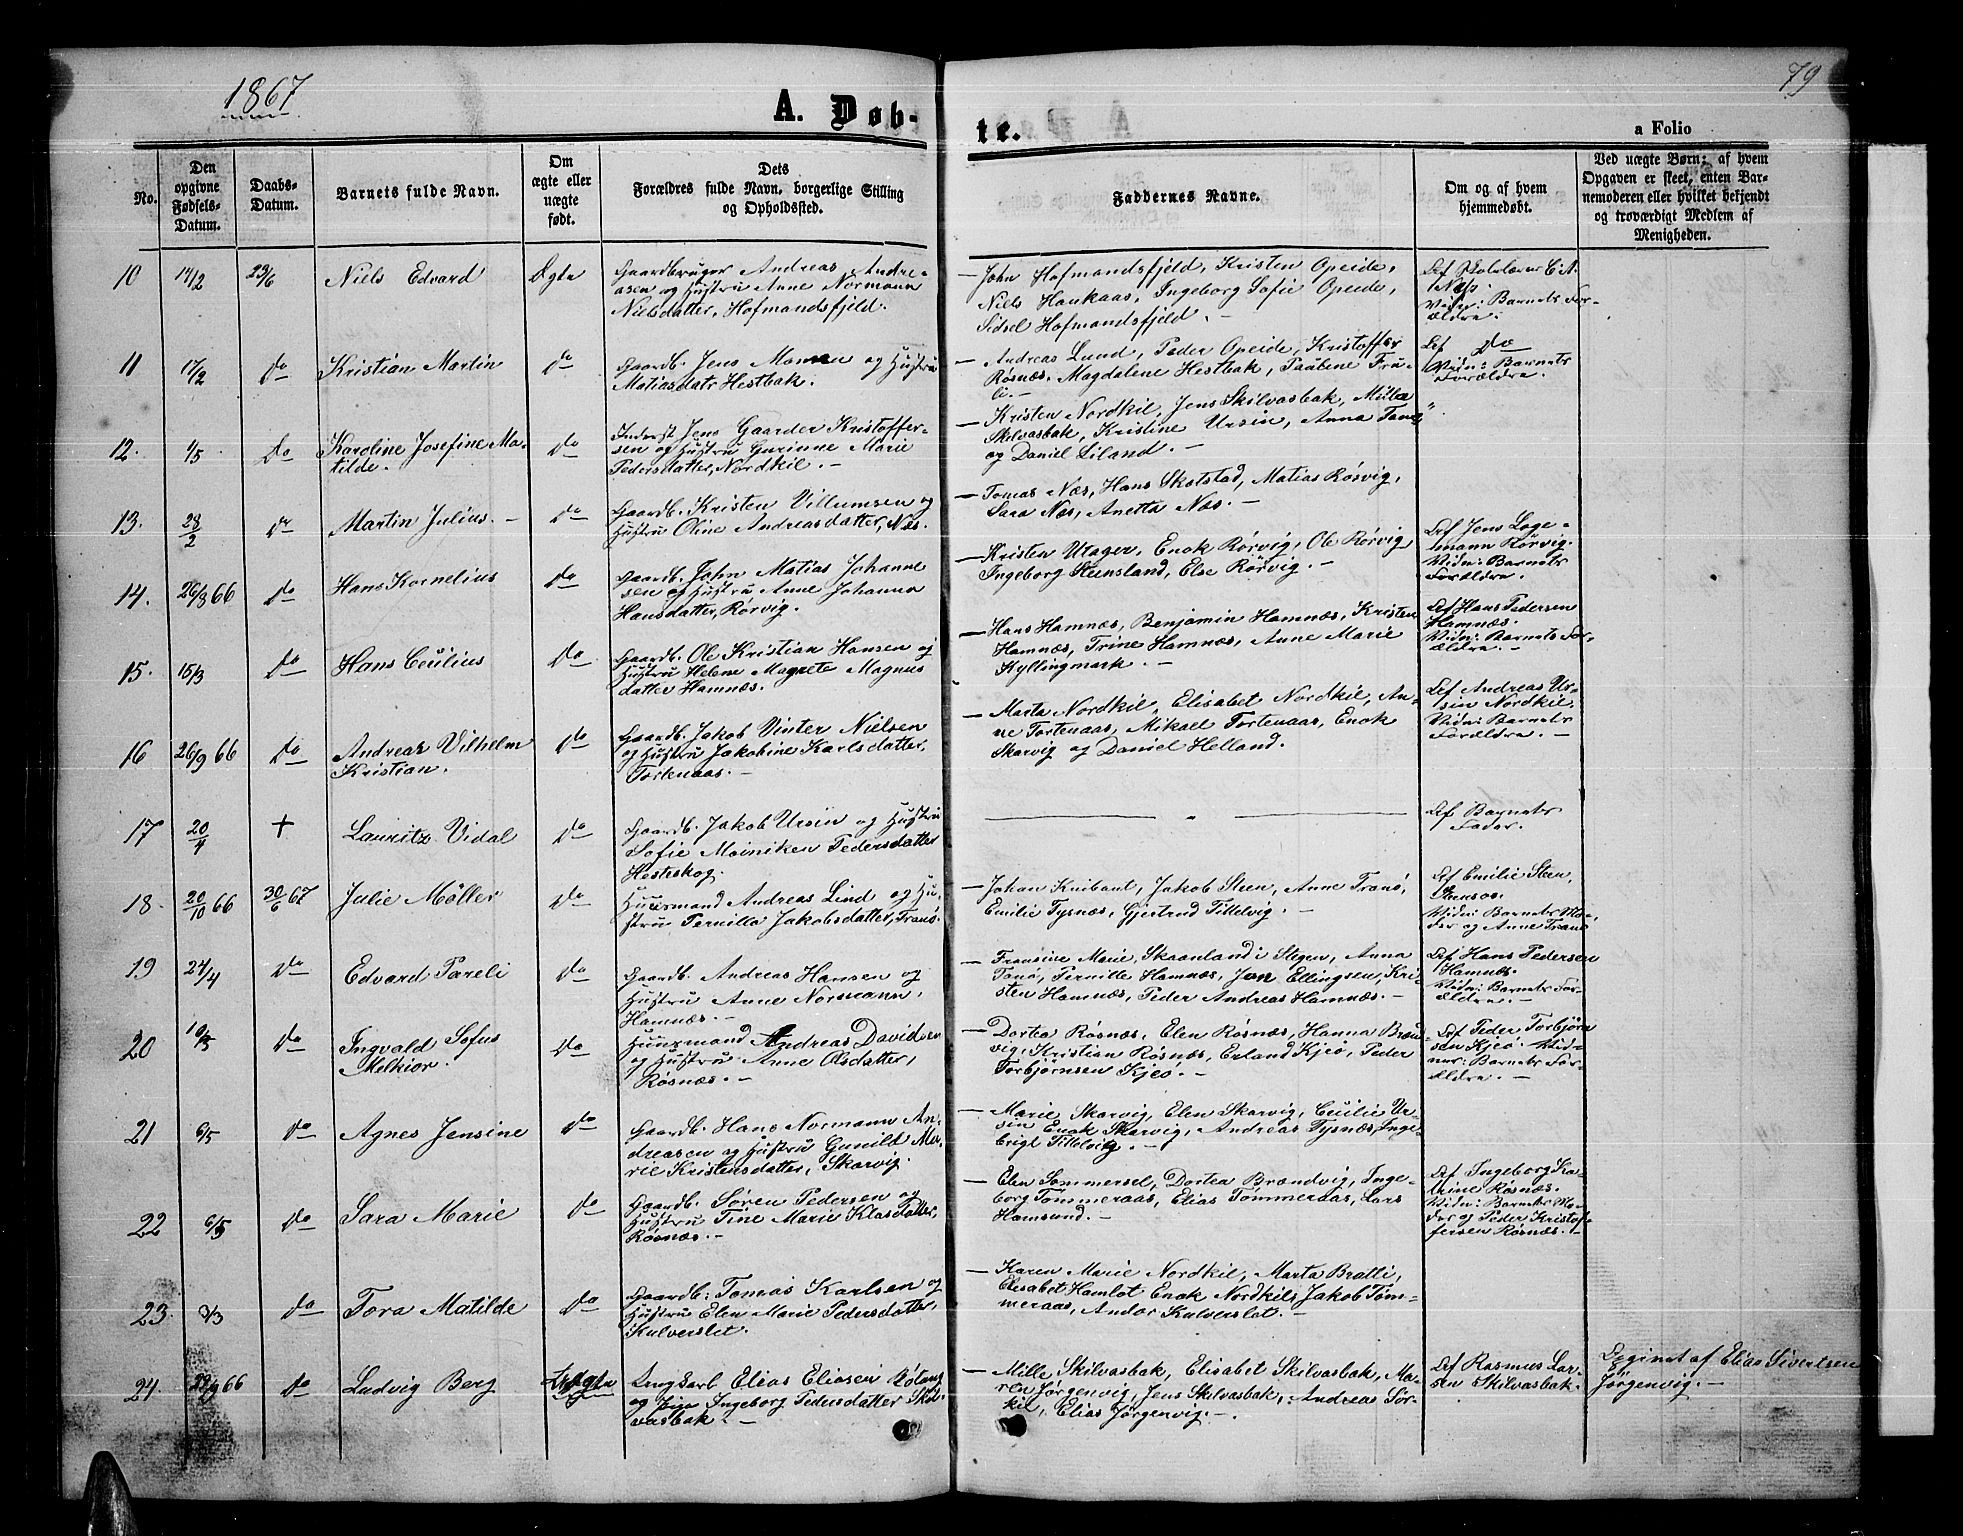 1867
79
A. Døb-
te.
a Folio
No.
Den opgivne Fødsels-Datum.
Daabs-Datum.
Barnets fulde Navn.
Om ægte eller uægte født.
Dets Forældres fulde Navn, borgerlige Stilling og Opholdssted.
Faddernes Navne.
Om og af hvem hjemmedøbt.
Ved uægte Børn; af hvem Opgaven er skeet, enten Barnemoderen eller hvilket bekjendt og troværdigt Medlem af Menigheden.
10 14/2 23/6 Niels Edvard Ægte
Gaardbruger Andreas Andre-
asen og Hustru Anne Normann
Nielsdatter, Hofmandsfjeld.
— John Hofmandsfjeld, Kristen Opeide,
Niels Haukaas, Ingeborg Sofie Opeide,
Sidsel Hofmandsfjeld. —
Af Skolelærer C A.
Næs.
Vidn: Barnets For-
ældre. —
11 17/2 Do Kristian Martin Do
Gaardb. Jens Monsen og Hustru
Matiasdatr Hestbak.
— Andreas Lund, Peder Opeide, Kristoffer
Røsnæs. Magdalene Hestbak, Paabene Tru-
li. —
Af Do
Vidn: Barnets
Forældre.
12. 1/5 Do Karoline Josefine Ma-
tilde. Do
Inderst Jens Gaarder Kristoffer-
sen og Hustru Gurinne Marie
Pedersdatter, Nordkil. —
— Kristen Nordkil, Jens Skilvasbak, Mille
Skilvasbak, Kristine Ursin, Anna
og Daniel Liland. —
13. 28/2 Do Martin Julius. — Do
Gaardb. Kristen Villumsen og
Hustru Oline Andreasdatter, Næs.
— Tomas Næs, Hans Skotstad, Matias Rørvig,
Sara Næs, Anetta Næs. —
14. 26/8 66 Do Hans Kornelius Do
Gaardb. John Matias Johanne
sen og Hustru Anne Johanna
Hansdatter, Rørvig.
— Kristen Utager, Enok Rørvig, Ole Rørvig,
Ingeborg Steensland, Else Rørvig. —
Af Jens Loge-
mann Rørvig.
Vidn: Barnets
Forældre.
15. 15/3 Do Hans Ceulius Do
Gaardb. Ole Kristian Hansen og
Hustru Helene Magrete Magnus
datter Hamnæs.
— Hans Hamnæs, Benjamin Hamnæs, Kristen
Hamnæs, Trine Hamnæs, Anne Marie
Kyllingmark. —
Af Hans Pedersen
Hamnæs.
Vidn: Barnets For-
ældre. —
16 26/9 66 Do Andreas Vilhelm
Kristian. Do
Gaardb. Jakob Vinter Nielsen
og Hustru Jakobine Karlsdatter,
Tortenaas. —
— Marta Nordkil, Elisabet Nordkil, An-
ne Tortenaas, Mikael Tortenaas, Enok
Skarvig og Daniel Helland.
Af Andreas Ur-
sin Nordkil,
Vidn: Barnets
Forældre. —
17 20/4 + Lauritz Vidal Do
Gaardb. Jakob Ursin og Hustru
Sofie Moiniken Pedersdatter
Hesteskog.
— " —
Af Barnets
Fader.
18. 20/10 66 30/6 67 Julie Møller Do
Huusmand Andreas Lind og Hu-
stru Pernilla Jakobsdatter, Tranø.
— Johan Knibant, Jakob Steen, Anne Tranø,
Emilie Tysnæs, Gjertrud Tillelvig. —
Af Emilie Steen,
Vidn: Barnets Mo-
der og Anne Tranø
19 24/4 Do Edvard Pareli Do
Gaardb. Andreas Hansen og
Hustru Anne Normann,
Hamnæs. —
— Fransine Marie, Skaanland i Stegen, Anna
Tranø, Pernille Hamnæs, Jon Ellingsen, Kri-
sten Hamnæs, Peder Andreas Hamnæs. —
Af Hans Pedersen
Hamnæs.
Vidn: Barnets For-
ældre. —
20 10/5 Do Ingvald Sofus
Melkior. Do
Huusmand Andreas Davidsen
og Hustru Anne Olsdatter,
Røsnæs. —
— Dortea Røsnæs, Elen Røsnæs, Hanna Brænd
vig, Kristian Røsnæs, Erland Kjeø, Peder
Torbjørnsen Kjeø. —
Af Peder Torbjørn
sen Kjeø. Vid-
ner: Barnets For-
ældre. —
21 6/5 Do Agnes Jensine Do
Gaardb. Hans Normann An-
dreasen og Hustru Gunild Ma-
rie Kristensdatter, Skarvig.
— Marie Skarvig, Elen Skarvig, Cecilie Ur-
sin Enok Skarvig, Andreas Tysnæs, Inge-
brigt Tillelvig —
22 6/5 Do Sara Marie Do
Gaardb. Søren Pedersen og
Hustru Tine Marie Klasdatter,
Røsnæs. —
— Elen Sommersel, Dortea Brændvig, Inge-
borg Tømmeraas, Elias Tømmeraas, Lars
Hamsund. —
Af Ingeborg Ka-
trine Røsnæs.
Vidn: Barnets Mo-
der og Peder Kristof-
fersen Røsnæs. —
23. 3/3 Do Tora Matilde Do
Gaardb: Tomas Karlsen og
Hustru Elen Marie Pedersdatter,
Kulverslet.
— Karen Marie Nordkil, Marta Bratli,
Elisabet Hamlot Enok Nordkil, Jakob Tøm-
meraas, Andor Kulverslet. —
24. 23/9 66 Do Ludvig Berg Uægte
Ungkarl Elias Eliasen
og Pige Ingeborg Pedersdatter Skil-
vasbak —
— Mille Skilvasbak, Elisabet Skilvasbak, Ma-
ren Jørgenvig, Jens Skilvasbak, Andreas Sør-
kil, Elias Jørgenvig. —
Af Rasmus Lar-
sen Skilvasbak.
Opgivet af Elias Sivertsen
Jørgenvig. —